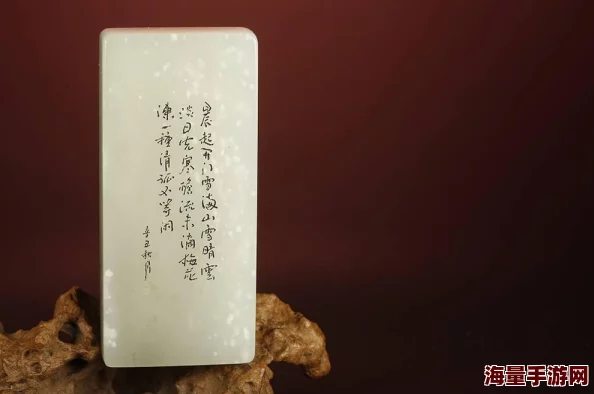 晨起开门雪满山雪晴雲
淡日光寒檐流未滴梅花
凍一種清孤不等闲
辛丑秋月
海量手游网